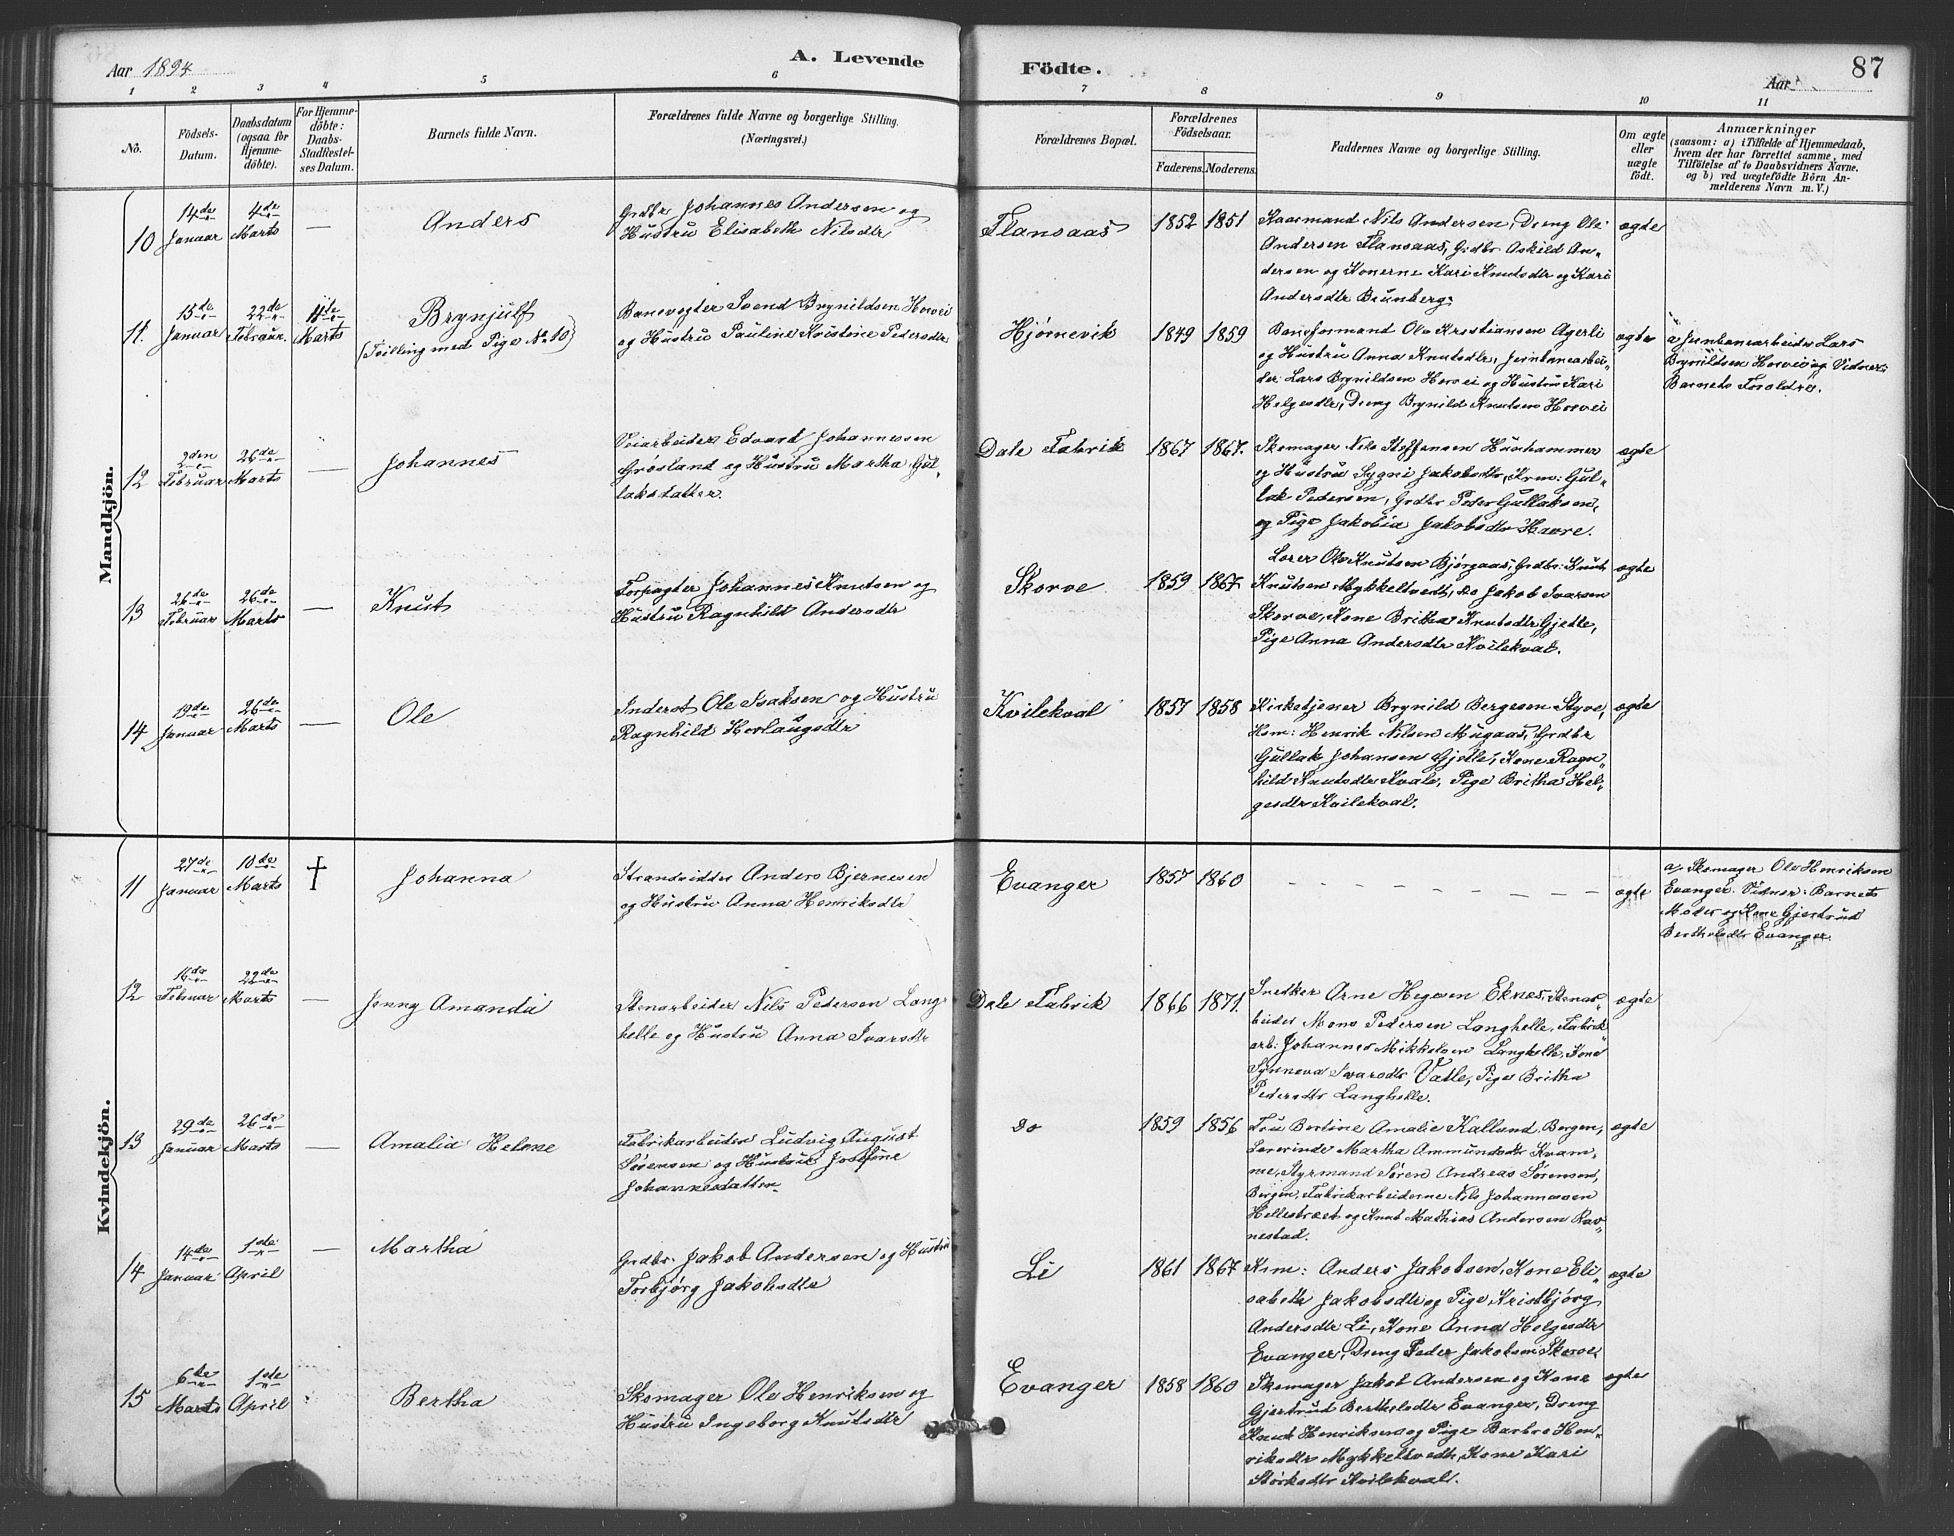 Aar 1894
A. Levende
Födte.
Aar
87
1 2 3 4 5 6 7 8 9 10 11
No.
Födsels-
Datum.
Daabsdatum
(ogsaa for
Hjemme-
döbte).
For Hjemme-
döbte:
Daabs-
Stadfæstel-
ses Datum.
Barnets fulde Navn.
Forældrenes fulde Navne og borgerlige Stilling.
(Næringsvei.)
Forældrenes Bopæl.
Forældrenes
Födselsaar.
Faderens. Moderens.
Faddernes Navne og borgerlige Stilling.
Om ægte
eller
uægte
födt.
Anmærkninger
(saasom: a) i Tilfælde af Hjemmedaab,
hvem der har forrettet samme, med
Tilföielse af to Daabsvidners Navne.
og b) ved uægtefödte Börn An-
melderens Navn m. V.)
Mandkjön.
10
14de
Januar
4de
Marts
—
Anders
Grdbr Johannes Andersen og
Hustru Elisabeth Nilsdtr
Flansaas
1852 1851
Kaarmand Nils Andersen, Dreng Ole
Andersen Flansaas, Grdbr Askild An-
dersen og Konerne Kari Knutsdtr og Kari
Andersdtr Brunberg.
ægte
11.
15de
Januar
22de
Februar.
4de
Marts
Brynjulf
(Tvilling med Pige No 10)
Banevogter Svend Brynildsen Horvei
og Hustru Pauline Kristine Pedersdtr
Hjørnevik
1849 1859
Baneformand Ole Kristiansen Agerli
og Hustru Anna Knutsdtr, Jernbanearbei-
der Lars Brynildsen Horvei og Hustru Kari
Helgesdtr, Dreng Brynild Knutsen Horvei
ægte
a Jernbanearbeider Lars
Brynildsen Horvei og Vidner:
Barnets Forældre.
12
2den
Februar
26de
Marts
—
Johannes
Veiarbeider Edvard Johannessen
Grøsland og Hustru Martha Gul-
laksdatter.
Dale Fabrik
1867 1867.
Skomager Nils Steffensen Hushammer
og Hustru Sygni Jakobsdtr, Krm: Gul-
lak Pedersen, Grdbr Peder Gullaksen,
og Pige Jakobia Jakobsdtr Havre.
ægte
13
26de
Februar
26de
Marts
—
Knut
Forpagter Johannes Knutsen og
Hustru Ragnhild Andersdtr
Skorve
1859 1867.
Lærer Ole Knutsen Bjørgaas, Grdbr: Knut
Knutsen Mykkeltvedt, do Jakob Ivarsen
Skorve, Kone Britha Knutsdtr Gjelle,
Pige Anna Andersdtr Kvilekval.
ægte
14
19de
Januar
26de
Marts
—
Ole
Inderst Ole Isaksen og Hustru
Ragnhild Herlaugsdtr
Kvilekval
1857 1858
Kirketjener Brynild Bergesen Styve,
Krm: Henrik Nilsen Mugaas, Grdbr
Gullak Johansen Gjelle, Kone Ragn-
hild Knutsdtr Kvale, Pige Britha Hel-
gesdtr Kvilekval.
ægte
Kvindekjön.
11
27de
Januar
10de
Marts
†
Johanna
Strandsidder Anders Bjernesen
og Hustru Anna Henriksdtr
Evanger
1857 1860
ægte
a, Skomager Ole Henriksen
Evanger. Vidner: Barnets
Moder og Kone Gjertrud
Bertholsdtr Evanger.
12
16de
Februar
22de
Marts
—
Jenny Amanda
Stenarbeider Nils Pedersen Lang-
helle og Hustru Anna Ivarsdtr
Dale Fabrik
1866 1871.
Snedker Arne Hegesen Eknes, Stenar-
beider Mons Pedersen Langhelle, Fabrik-
arb: Johannes Mikkelsen Langhelle, Kone
Synneva Ivarsdtr Vatle, Pige Britha
Pedersdtr Langhelle.
ægte
13
29de
Januar
26de
Marts
—
Amalia Helene
Fabrikarbeider Ludvig August
Sørensen og Hustru Josefine
Johannesdatter.
do
1859 1856
Fru Bertine Amalie Kalland, Bergen,
Lærerinde Martha Ammundsdtr Kvam-
me, Styrmand Søren Andreas Sørensen,
Bergen, Fabrikarbeiderne Nils Johannessen
Hellestræet og Knut Mathias Andersen Rav-
nestad.
ægte
14
14de
Januar
1ste
April
—
Martha
Grdbr. Jakob Andersen og Hustru
Torbjørg Jakobsdtr
Li
1861 1867
Krm: Anders Jakobsen, Kone Eli-
sabeth Jakobsdtr og Pige Kristbjørg
Andersdtr Li, Kone Anna Helgesdtr
Evanger, Dreng Peder Jakobsen Skorve.
ægte
15
6te
Marts
1ste
April
Bertha
Skomager Ole Henriksen og
Hustru Ingeborg Knutsdtr
Evanger
1858 1860
Skomager Jakob Andersen og Kone
Gjertrud Bertholsdtr Evanger, Dreng
Knut Henriksen og Pige Barbro Hen-
riksdtr Mykkeltvedt, Kone Kari
Størksdtr Kvilekval.
ægte